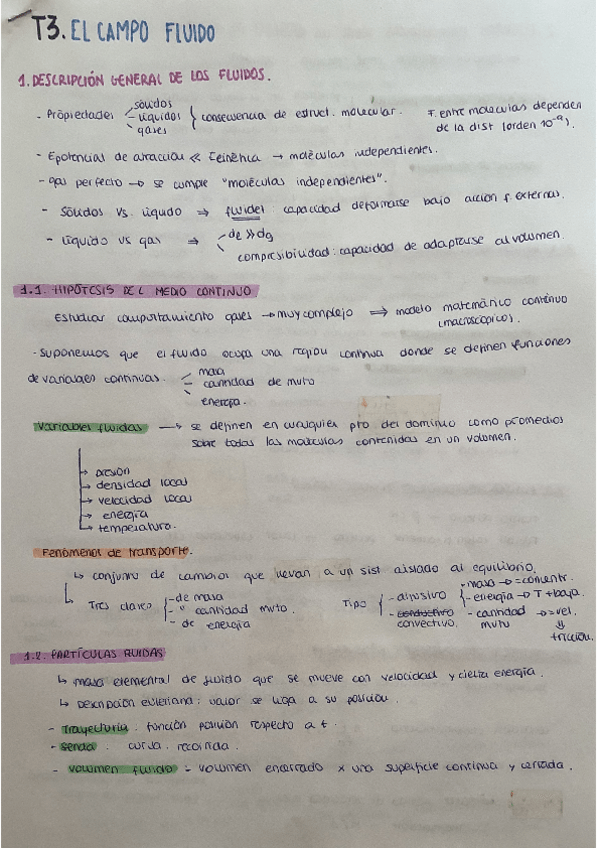 T3. EL CAMPO FLUIDO
1. DESCRIPCIÓN GENERAL DE LOS FLUIDOS.
- Propiedades sólidos líquidos gases } consecuencia de estruct. molecular. F. entre moléculas dependen de la dist (orden 10⁻⁹).
- Epotencial de atracción << Ecinética → moléculas independientes.
- gas perfecto → se cumple "moléculas independientes".
- Sólidos vs. líquido ⇒ fluidez capacidad deformarse bajo acción f. externas.
- líquido vs gas ⇒ - dl >> dg
compresibilidad: capacidad de adaptarse al volumen.
1.1. HIPÓTESIS DEL MEDIO CONTINUO
Estudiar comportamiento gases → muy complejo ⇒ modelo matemático continuo
(macroscópicos).
- Suponemos que el fluido ocupa una región continua donde se definen funciones
de variables continuas. masa
cantidad de mvto
energía.
Variables fluidas → se definen en cualquier pto del dominio como promedios
sobre todas las moléculas contenidas en un volumen.
→ presión
→ densidad local
→ velocidad local
→ energía
→ temperatura.
Fenómenos de transporte.
↳ conjunto de cambios que llevan a un sist aislado al equilibrio.
↳ Tres clases { - de masa
- " cantidad mvto.
- de energía
Tipo { - difusivo { - masa → = concentr.
- energía → T + baja.
- cantidad mvto → = vel.
⇓
fricción.
- conductivo
convectivo.
1.2. PARTÍCULAS FLUIDAS
↳ masa elemental de fluido que se mueve con velocidad y cierta energía.
↳ Descripción euleriana: valor se liga a su posición.
- Trayectoria: función posición respecto a t.
- senda: curva recorrida.
- volumen fluido = volumen encerrado x una superficie continua y cerrada.